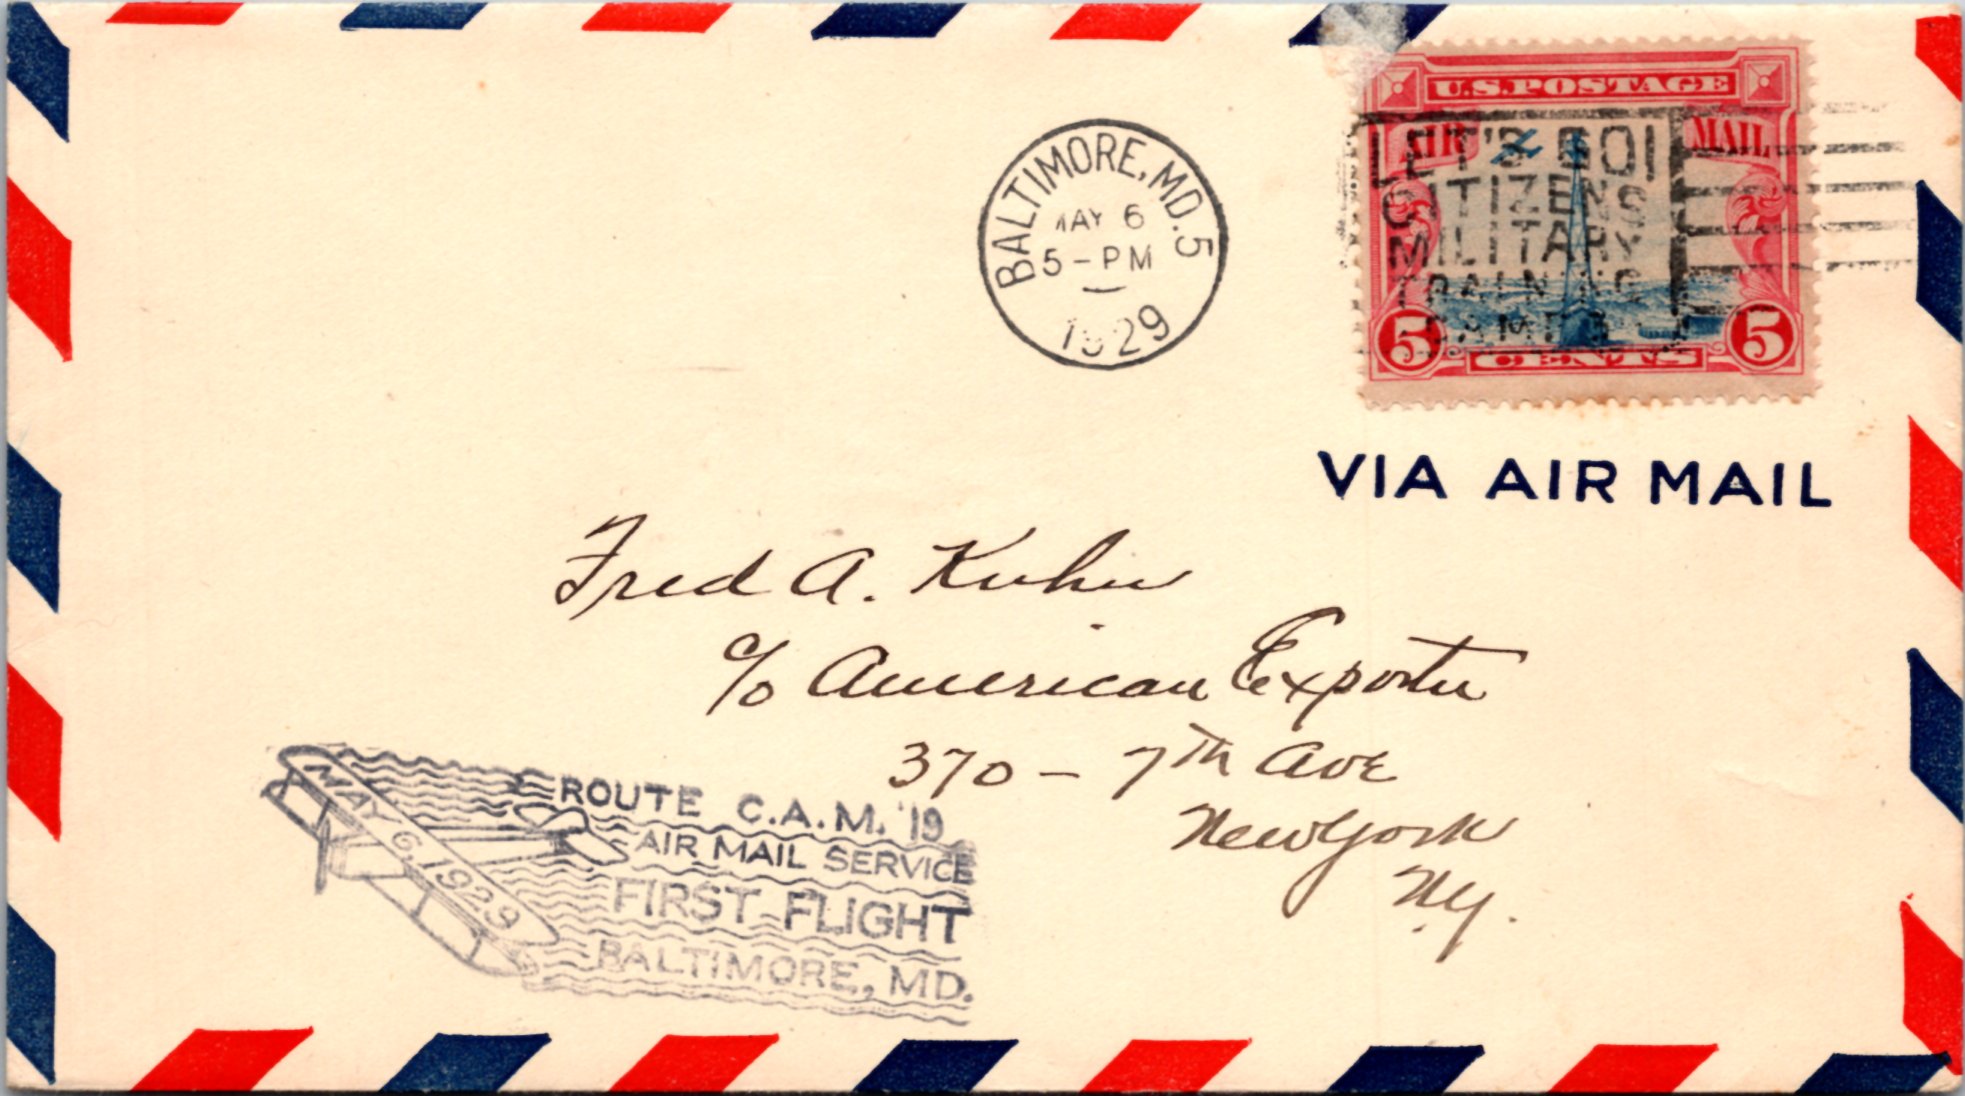 U.S. POSTAGE
AIR MAIL
5 CENTS 5
BALTIMORE, MD. 5
MAY 6
5-PM
1929
LET'S GO!
CITIZENS
MILITARY
TRAINING
CAMPS
VIA AIR MAIL
Fred A. Kuhn
c/o American Exporter
370 - 7th Ave
New York
N.Y.
MAY 6, 1929
ROUTE C.A.M. '19
AIR MAIL SERVICE
FIRST FLIGHT
BALTIMORE, MD.